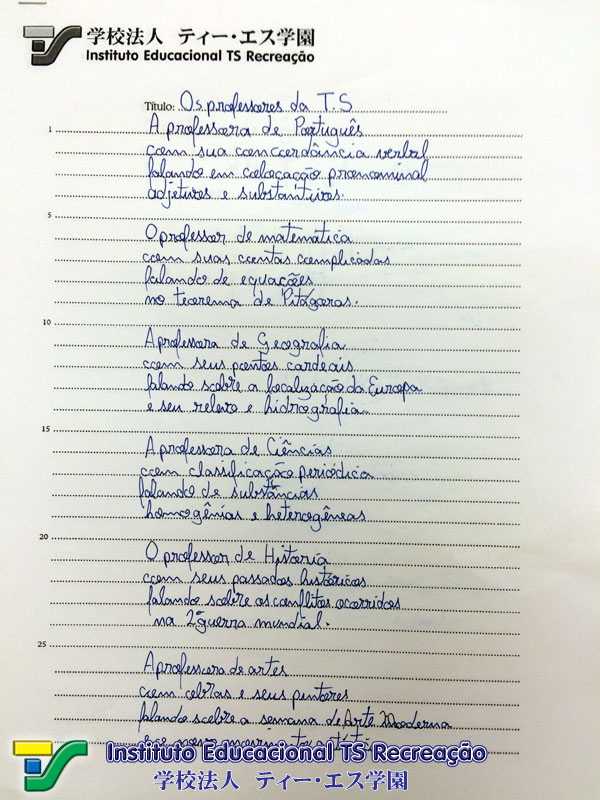 学校法人 ティー・エス学園
Instituto Educacional TS Recreação
Título: Os professores da T.S
1 A professora de Português
com sua concordância verbal
falando em colocação pronominal
adjetivos e substantivos.
5
O professor de matemática
com suas contas complicadas
falando de equações
no teorema de Pitágoras.
10
A professora de Geografia
com seus pontos cardeais
falando sobre a localização da Europa
e seu relevo e hidrografia.
15
A professora de Ciências
com classificação periódica
falando de substâncias
homogênias e heterogêneas
20
O professor de História
com seus passados históricos
falando sobre os conflitos ocorridos
na 2ª guerra mundial.
25
A professora de artes
com obras e seus pintores
falando sobre a semana de Arte Moderna
Instituto Educacional TS Recreação
学校法人 ティー・エス学園